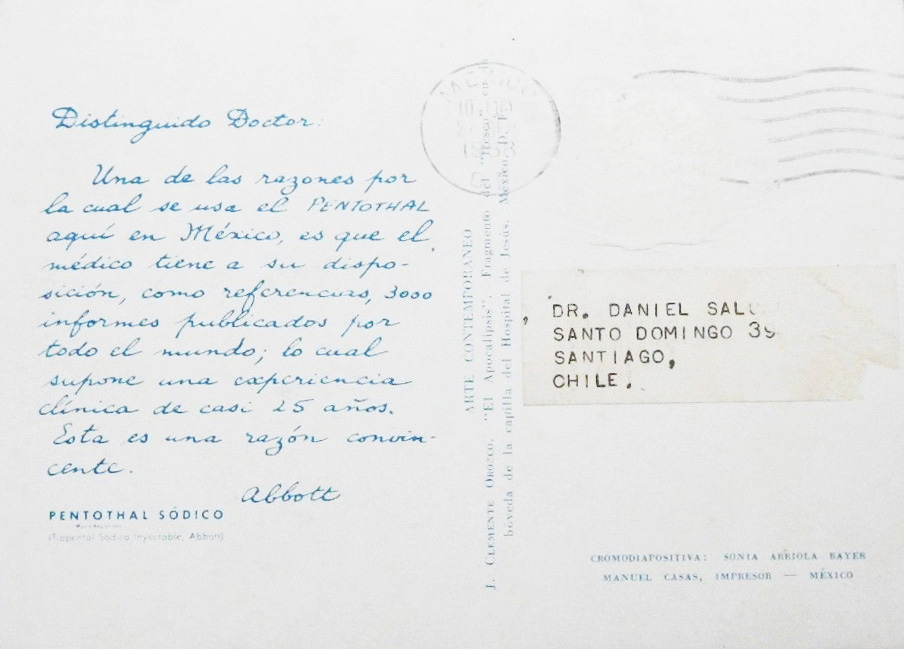 Distinguido Doctor:
Una de las razones por
la cual se usa el PENTOTHAL
aquí en México, es que el
médico tiene a su dispo-
sición, como referencias, 3000
informes publicados por
todo el mundo; lo cual
supone una experiencia
clínica de casi 25 años.
Esta es una razón convin-
cente.
Abbott
PENTOTHAL SÓDICO
(Tiopental Sódico Inyectable, Abbott)
ARTE CONTEMPORANEO
J. CLEMENTE OROZCO. "El Apocalipsis". Fragmento del
bóveda de la capilla del Hospital de Jesús. México, D. F.
MEXICO
DR. DANIEL
SANTO DOMINGO
SANTIAGO,
CHILE.
CROMODIAPOSITIVA: SONIA ARRIOLA BAYER
MANUEL CASAS, IMPRESOR — MÉXICO